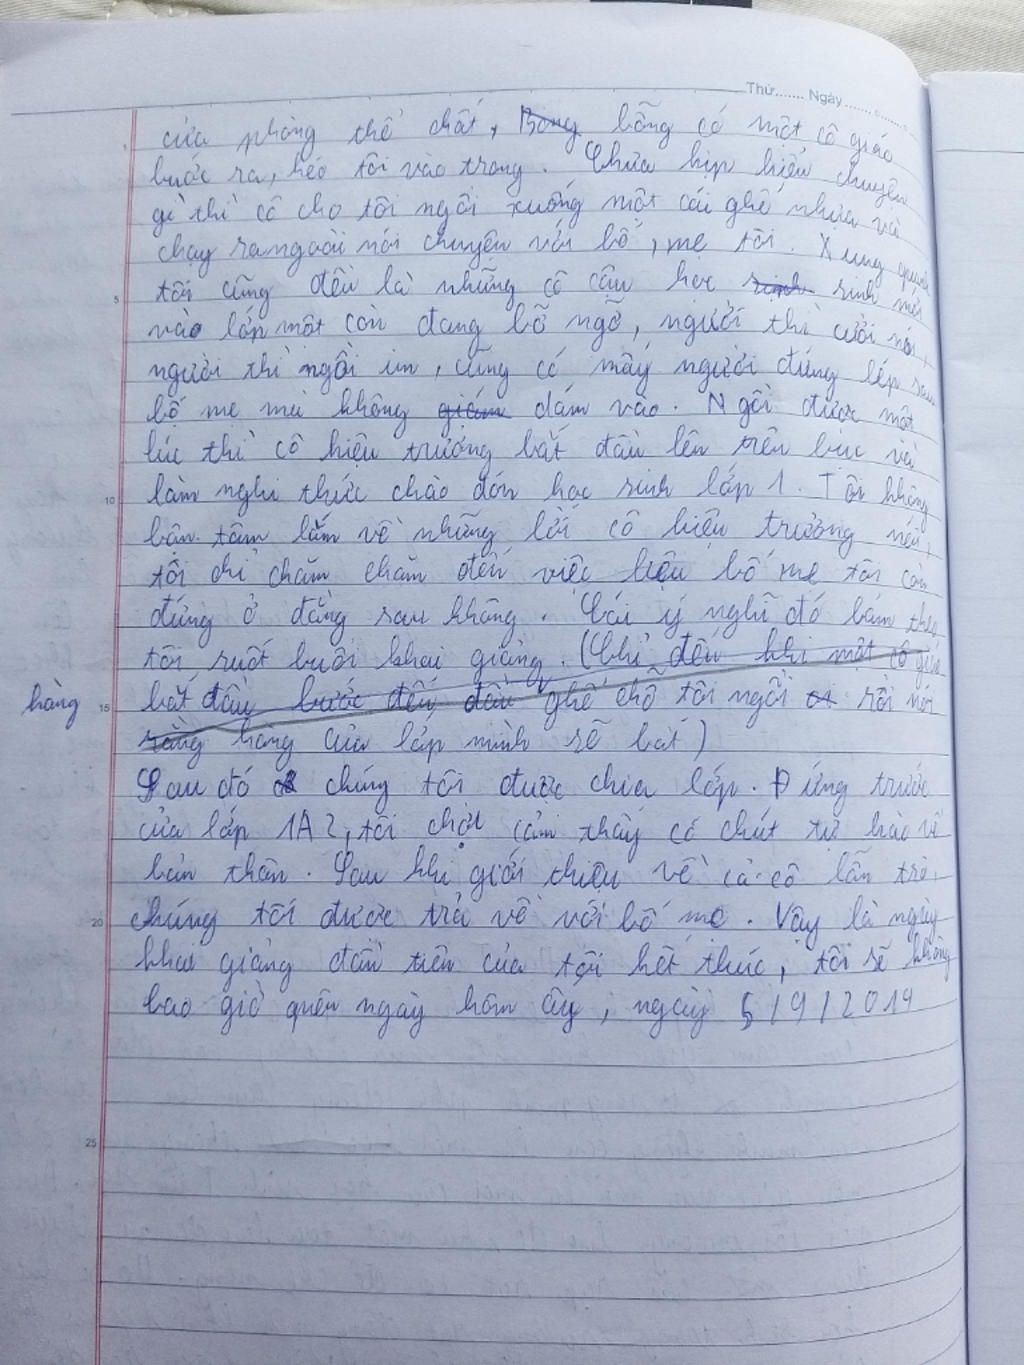 Thứ....... Ngày.......
cửa phòng thể chất, Bỗng bỗng có một cô giáo
bước ra, kéo tôi vào trong. Chưa kịp hiểu chuyện
gì thì cô cho tôi ngồi xuống một cái ghế nhựa và
chạy ra ngoài nói chuyện với bố, mẹ tôi. Xung quanh
5 tôi cũng đều là những cô cậu học sinh sinh mới
vào lớp một còn đang bỡ ngỡ, người thì cười nói,
người thì ngồi im, cũng có mấy người đứng lép sau
bố mẹ mà không giám dám vào. Ngồi được một
lúc thì cô hiệu trưởng bắt đầu lên trên bục và
10 làm nghi thức chào đón học sinh lớp 1. Tôi không
bận tâm lắm về những lời cô hiệu trưởng nói,
tôi chỉ chăm chăm đến việc liệu bố mẹ tôi còn
đứng ở đằng sau không. Cái ý nghĩ đó bám theo
tôi suốt buổi khai giảng. (Chỉ đến khi một cô giáo
hàng 15 bắt đầu bước đến đầu ghế chỗ tôi ngồi rồi nói
rằng hàng của lớp mình sẽ bắt)
Sau đó chúng tôi được chia lớp. Đứng trước
cửa lớp 1A2, tôi chợt cảm thấy có chút tự hào về
bản thân. Sau khi giới thiệu về cả cô lẫn trò,
20 chúng tôi được trả về với bố mẹ. Vậy là ngày
khai giảng đầu tiên của tôi kết thúc, tôi sẽ không
bao giờ quên ngày hôm ấy, ngày 5/9/2014
25